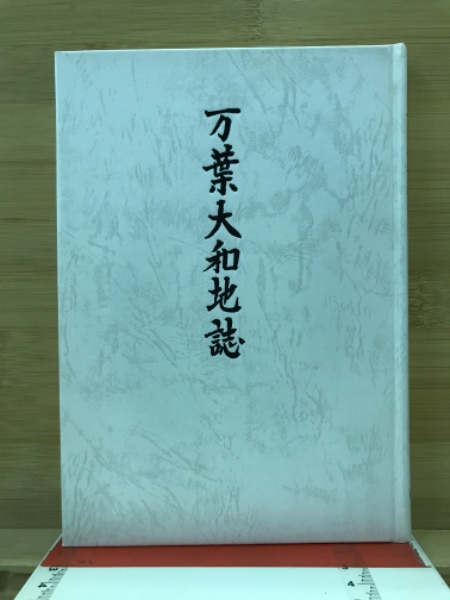 万葉大和地誌